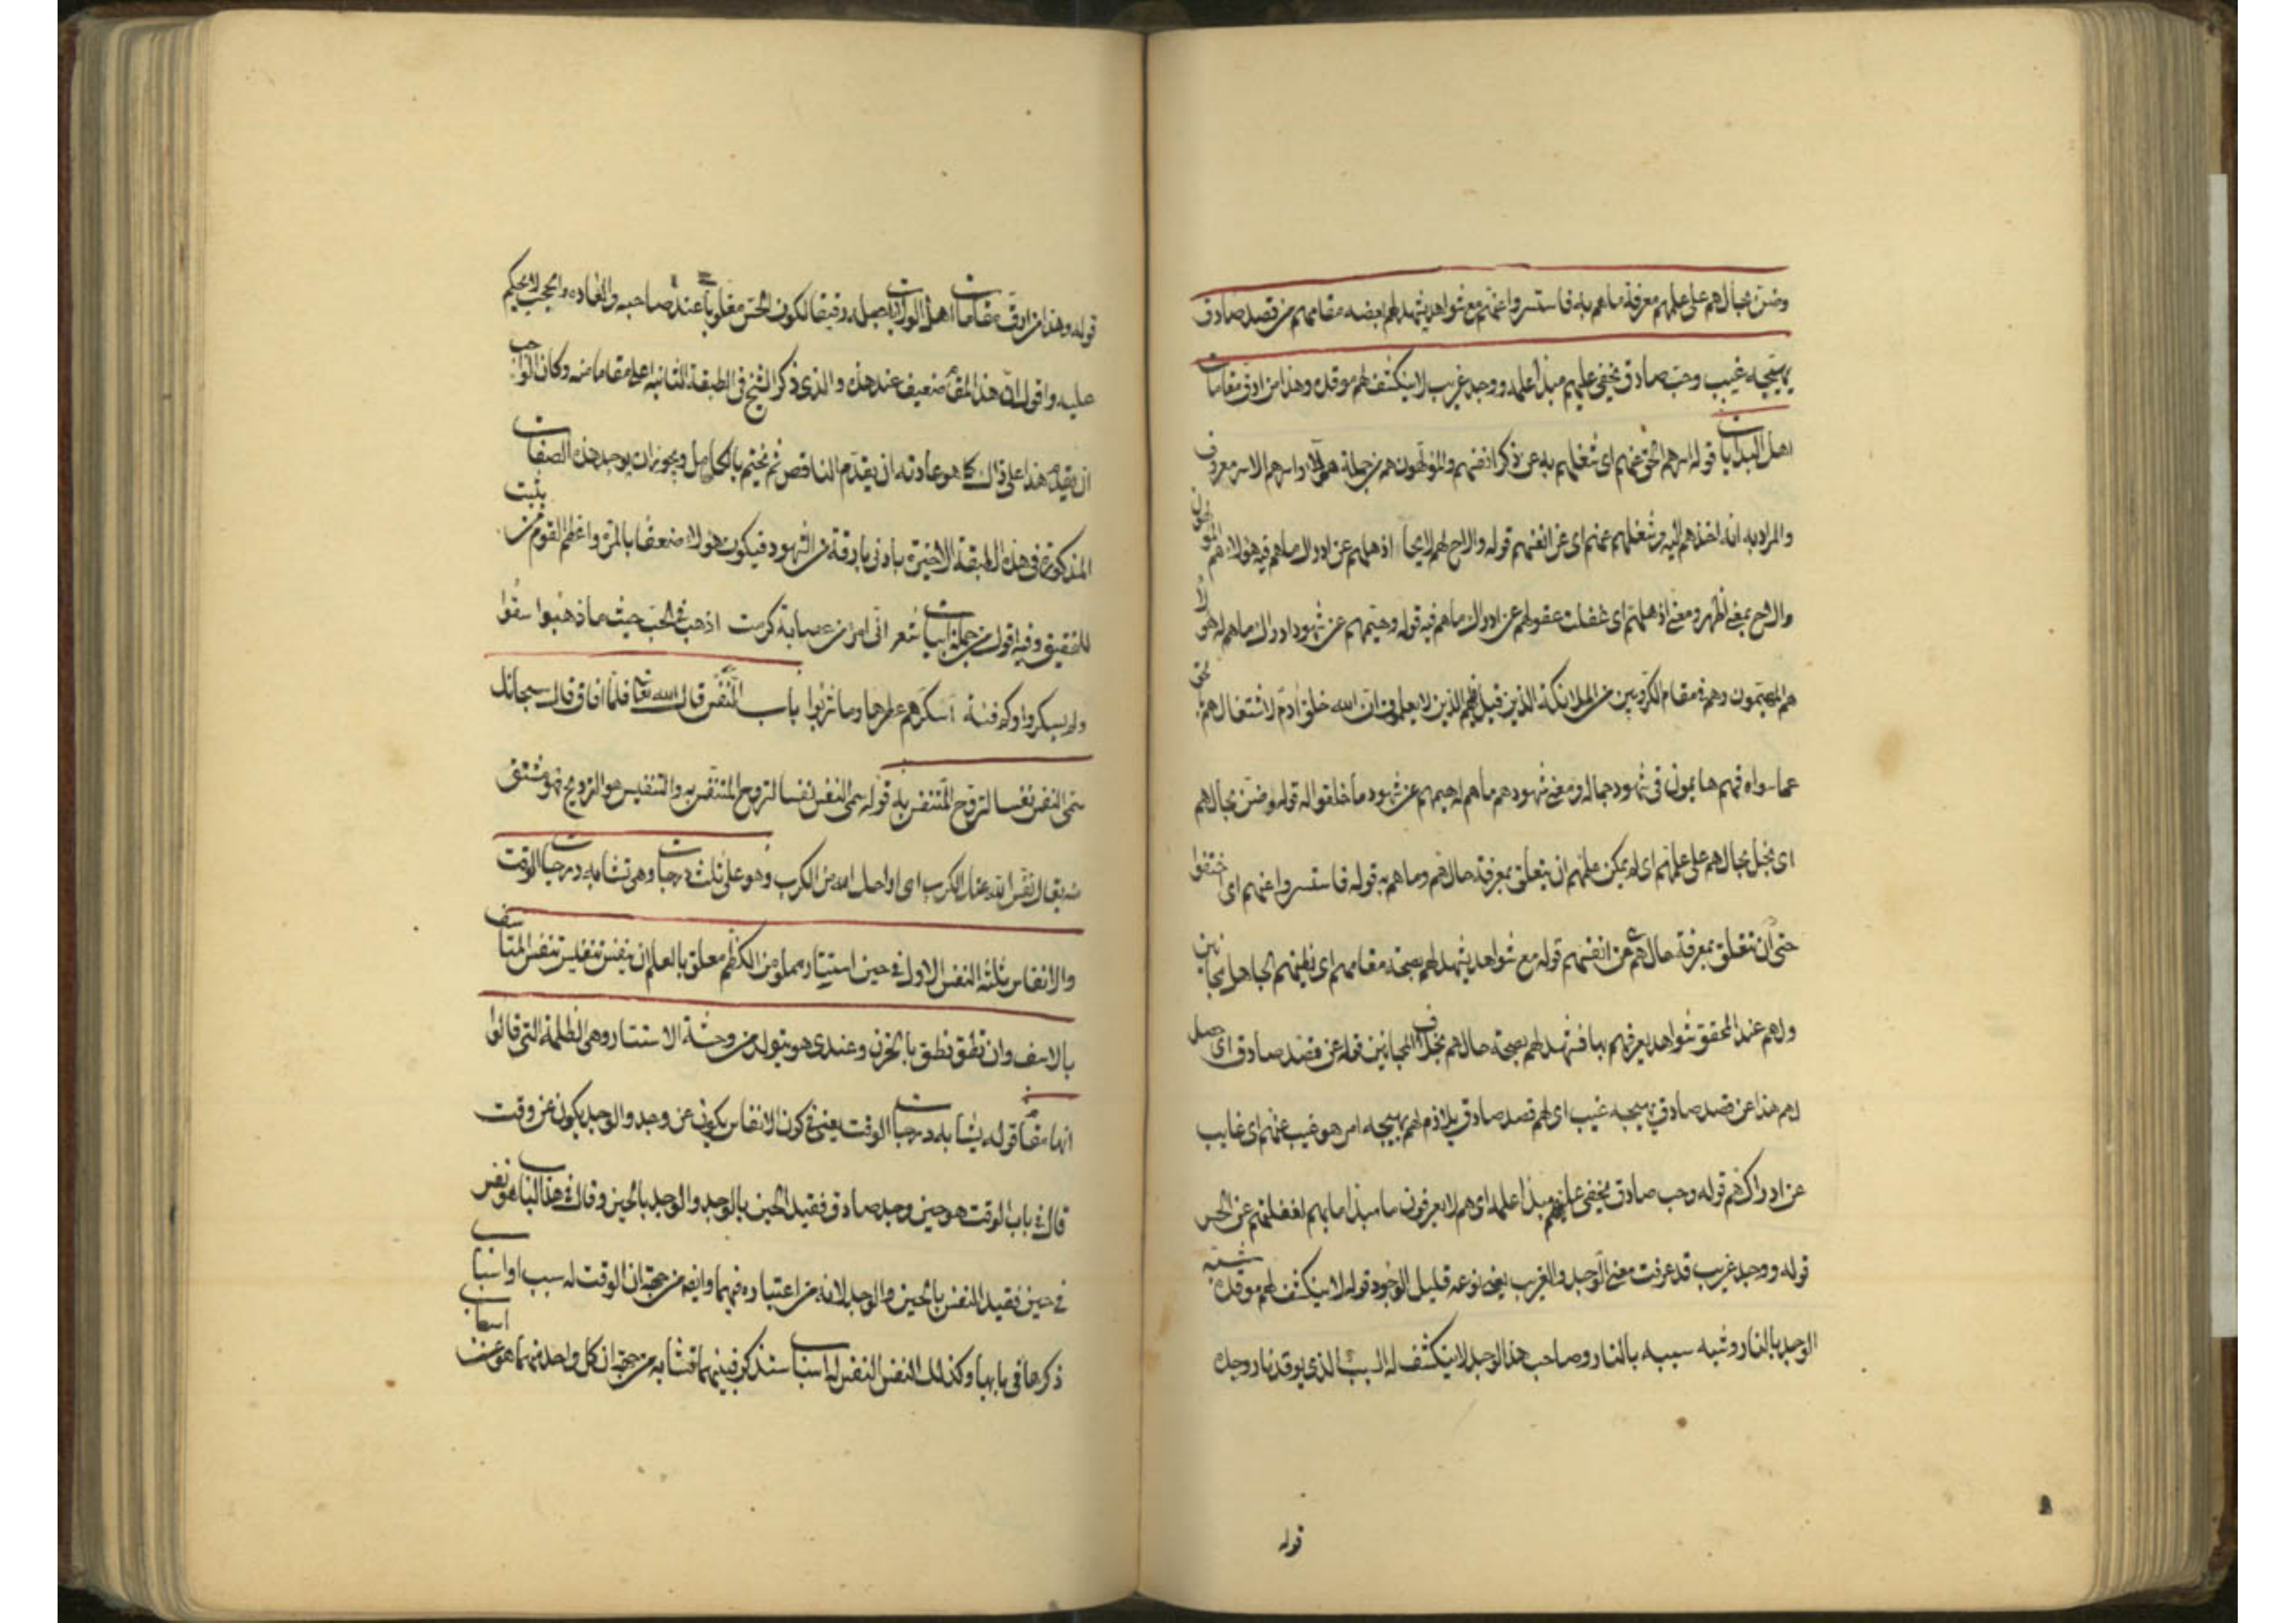 وضن بحالهم على علمهم معرفة ما هم به فاستسروا عنهم مع شواهد يشهد لهم بصحة مقامهم من قصد صادق
يهيجه غيب وحب صادق يخفى عليهم مبدأ علمه ووجد غريب لا ينكشف لهم موقده وهذا من ادق مقامات
اهل البدايات قوله اسرهم الحق عنهم اى شغلهم به عن ذكر انفسهم والمولهون هم من جملة هولاء واسرهم الاسر معروف
والمراد به انه اخذهم اليه وشغلهم عنهم اى عن انفسهم قوله والاح لهم لايحا اذهلهم عن ادراك ما هم فيه هولاء هم المولهون
والاح بمعنى اظهر ومعنى اذهلهم اى غفلت عقولهم عن ادراك ما هم فيه قوله وهيمهم عن شهود ادراك ما هم له هولاء
هم المهيمون وهم فى مقام الكروبيين من الملائكة الذين قيل فيهم الذين لا يعلمون ان الله خلق آدم لاشتغالهم بحق
عما سواه فهم هايمون فى شهود جماله ومعنى شهودهم ما هم له هيمهم عن شهود ما خلقوا له قوله وضن بحالهم
اى بخل بحالهم على علمهم اى لم يمكن علمهم ان يتعلق بمعرفة حالهم وما هم به قوله فاستسروا عنهم اى اختفوا
حتى ان تتعلق بمعرفة حالهم عن انفسهم قوله مع شواهد يشهد لهم بصحة مقامهم اى يظنهم الجاهل مجانين
ولهم عند المحقق شواهد يعرفهم بها فتشهد لهم بصحة حالهم بخلاف المجانين قوله عن قصد صادق اى حصل
لهم هذا عن قصد صادق يهيجه غيب اى لهم قصد صادق يلازم لهم يهيجه امر هو غيب عنهم اى غايب
عن ادراكهم قوله وحب صادق يخفى عليهم مبدأ علمه اى هم لا يعرفون ما مبدأ ما بهم لغفلتهم عن الحس
قوله ووجد غريب قد عرفت معنى الوجد والغريب يعنى نوعه قليل الوجود قوله لا ينكشف لهم موقده شبه
الوجد بالنار وشبه سببه بالنار وصاحب هذا الوجد لا ينكشف له السبب الذى يوقد نار وجده
قوله
قوله وهذا من ادق مقامات اهل الولايات جعله دقيقا لكون الحس مغلوبا عند صاحبه والعادة والحجب لا يحكم
عليه واقول ان هذا المقام ضعيف عند هذه والذى ذكر الشيخ فى الطبقة الثانية اعلى مقاما منه وكان الواجب
ان يقدم هذا على ذاك كما هو عادته ان يقدم الناقص ثم يختم بالكامل ويجوز ان يوجد هذه الصفات
المذكورة فى هذه الطبقة الاخيرة بادنى بارقة من الشهود فيكون هولاء ضعفا بالمرة واعظم القوم من يثبت
للتحقيق وفيه اقول من جملة ابيات شعر انى امرؤ من عصابة كرمت اذهب فى الحب حيث ما ذهبوا سقوا
ولم يسكروا وكم فئة اسكرهم عطرها وما شربوا باب النفس قال الله تعالى فلما افاق قال سبحانك
سمى النفس نفسا لتروح المتنفس به قوله سمى النفس نفسا لتروح المتنفس به والتنفيس هو الترويح فهو مشتق
منه يقال نفس الله عنك الكرب اى اراحك الله من الكرب وهو على ثلث درجات وهى تشابه درجات الوقت
والانفاس ثلثة النفس الاول فى حين استتار مملو من الكظم معلق بالعلم ان تنفس تنفس تنفس المتاسف
بالاسف وان نطق نطق بالحزن وعندى هو يتولد من وحشة الاستتار وهى الظلمة التى قالوا
انها مقام قوله يشابه درجات الوقت يعنى فى كون الانفاس يكون عن وجد والوجد يكون عن وقت
قال فى باب الوقت هو حين وجد صادق فقيد الحين بالوجد والوجد بالحين وقال فى هذا الباب هو نفس
فى حين فقيد النفس بالحين والوجد لا بد من اعتباره فيهما وايضا من جهة ان الوقت له سبب او اسباب
ذكرها فى بابها وكذلك النفس النفس له اسباب سنذكر فبينهما تشابه من جهة ان كل واحد منهما هو عن اسباب